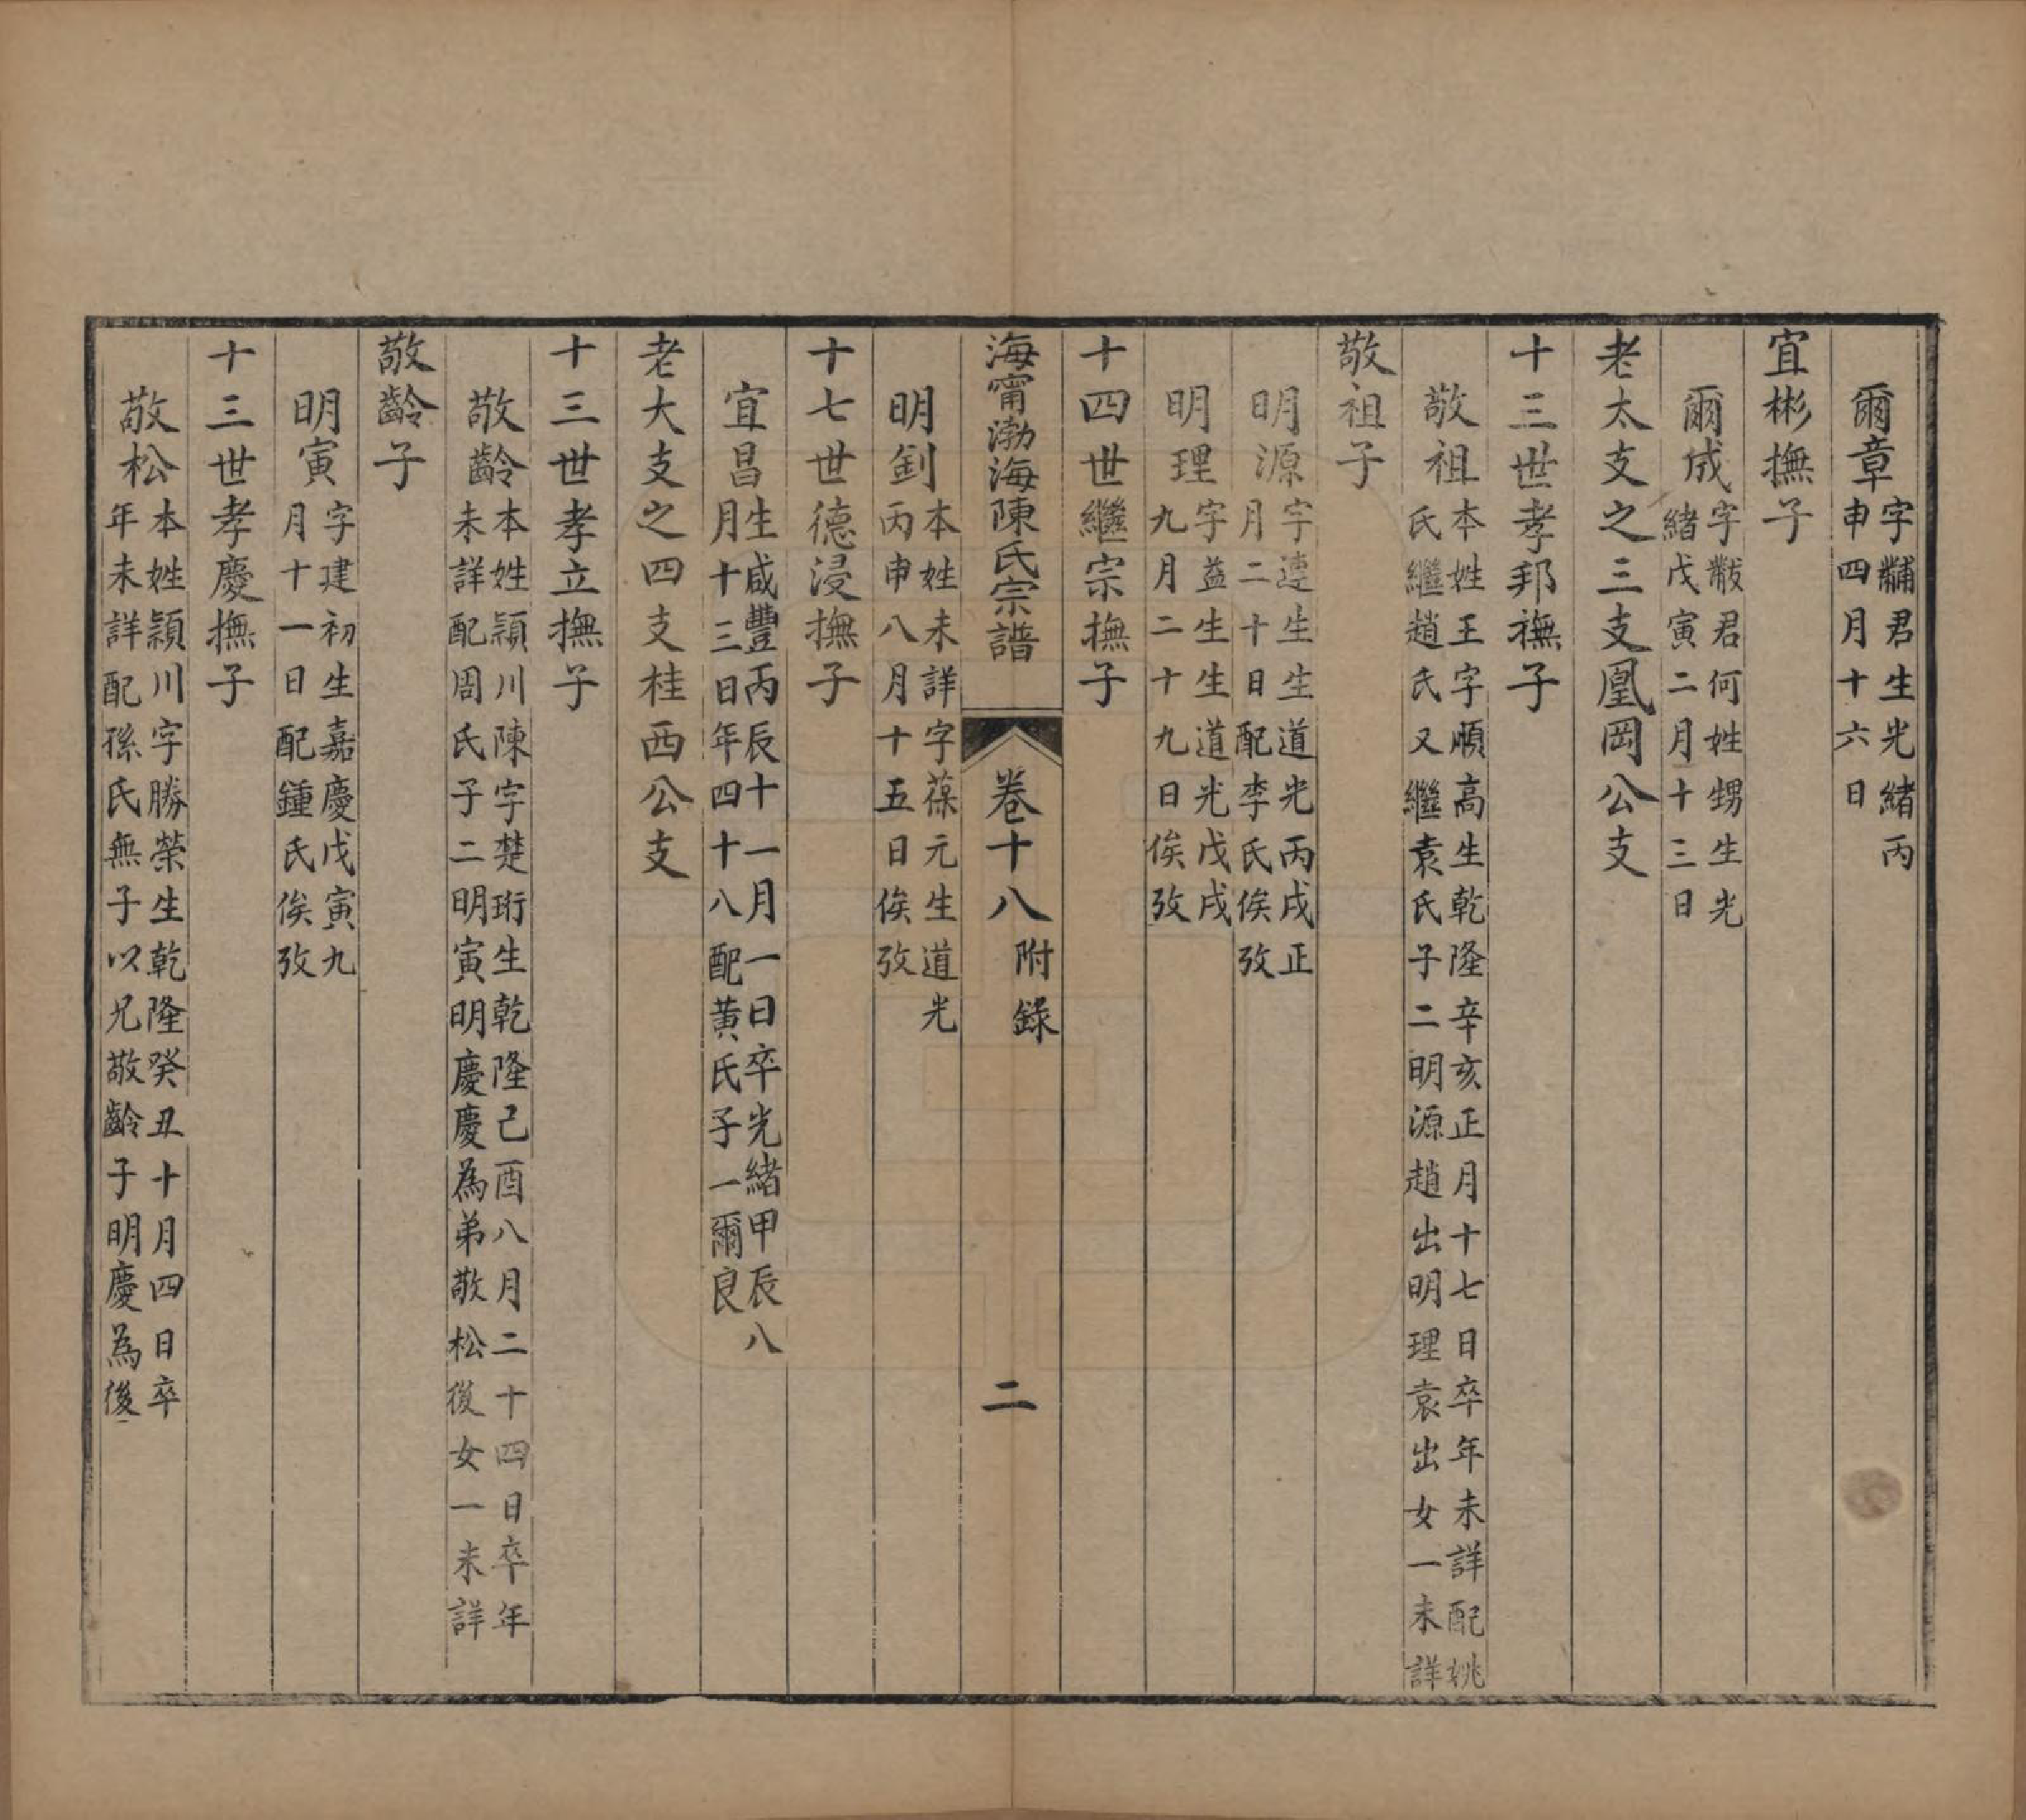 爾章字黼君生光緒丙
申四月十六日
宜彬撫子
爾成字黻君何姓甥生光
緒戊寅二月十三日
老太支之三支凰岡公支
十三世孝邦撫子
敬祖本姓王字順高生乾隆辛亥正月十七日卒年未詳配姚
氏繼趙氏又繼袁氏子二明源趙出明理袁出女一未詳
敬祖子
明源字連生生道光丙戌正
月二十日配李氏俟攷
明理字益生生道光戊戌
九月二十九日俟攷
十四世繼宗撫子
海甯渤海陳氏宗譜 卷十八 附錄 二
明釗本姓未詳字葆元生道光
丙申八月十五日俟攷
十七世德浸撫子
宜昌生咸豐丙辰十一月一日卒光緒甲辰八
月十三日年四十八配黃氏子一爾良
老大支之四支桂西公支
十三世孝立撫子
敬齡本姓潁川陳字楚珩生乾隆己酉八月二十四日卒年
未詳配周氏子二明寅明慶慶為弟敬松後女一未詳
敬齡子
明寅字建初生嘉慶戊寅九
月十一日配鍾氏俟攷
十三世孝慶撫子
敬松本姓潁川字勝榮生乾隆癸丑十月四日卒
年未詳配孫氏無子以兄敬齡子明慶為後